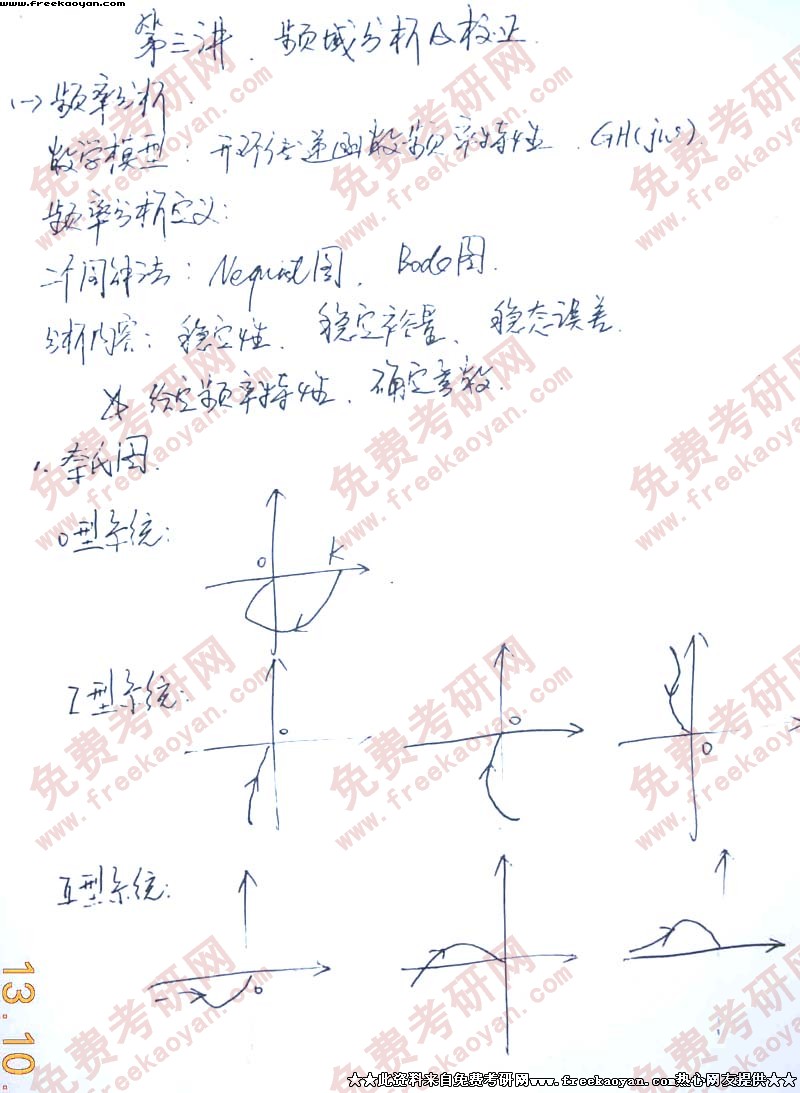 www.freekaoyan.com
第三讲. 频域分析及校正.
(一) 频率分析.
数学模型: 开环传递函数频率特性. GH(jw).
频率分析定义:
二个图解法: Nequist图, Bode图.
分析内容: 稳定性, 稳定裕量, 稳态误差.
给定频率特性, 确定参数.
1. 奈氏图.
0型系统:
0
K
I型系统:
0
0
0
II型系统:
0
13.10.
★★此资料来自免费考研网www.freekaoyan.com热心网友提供★★
免费考研网
www.freekaoyan.com